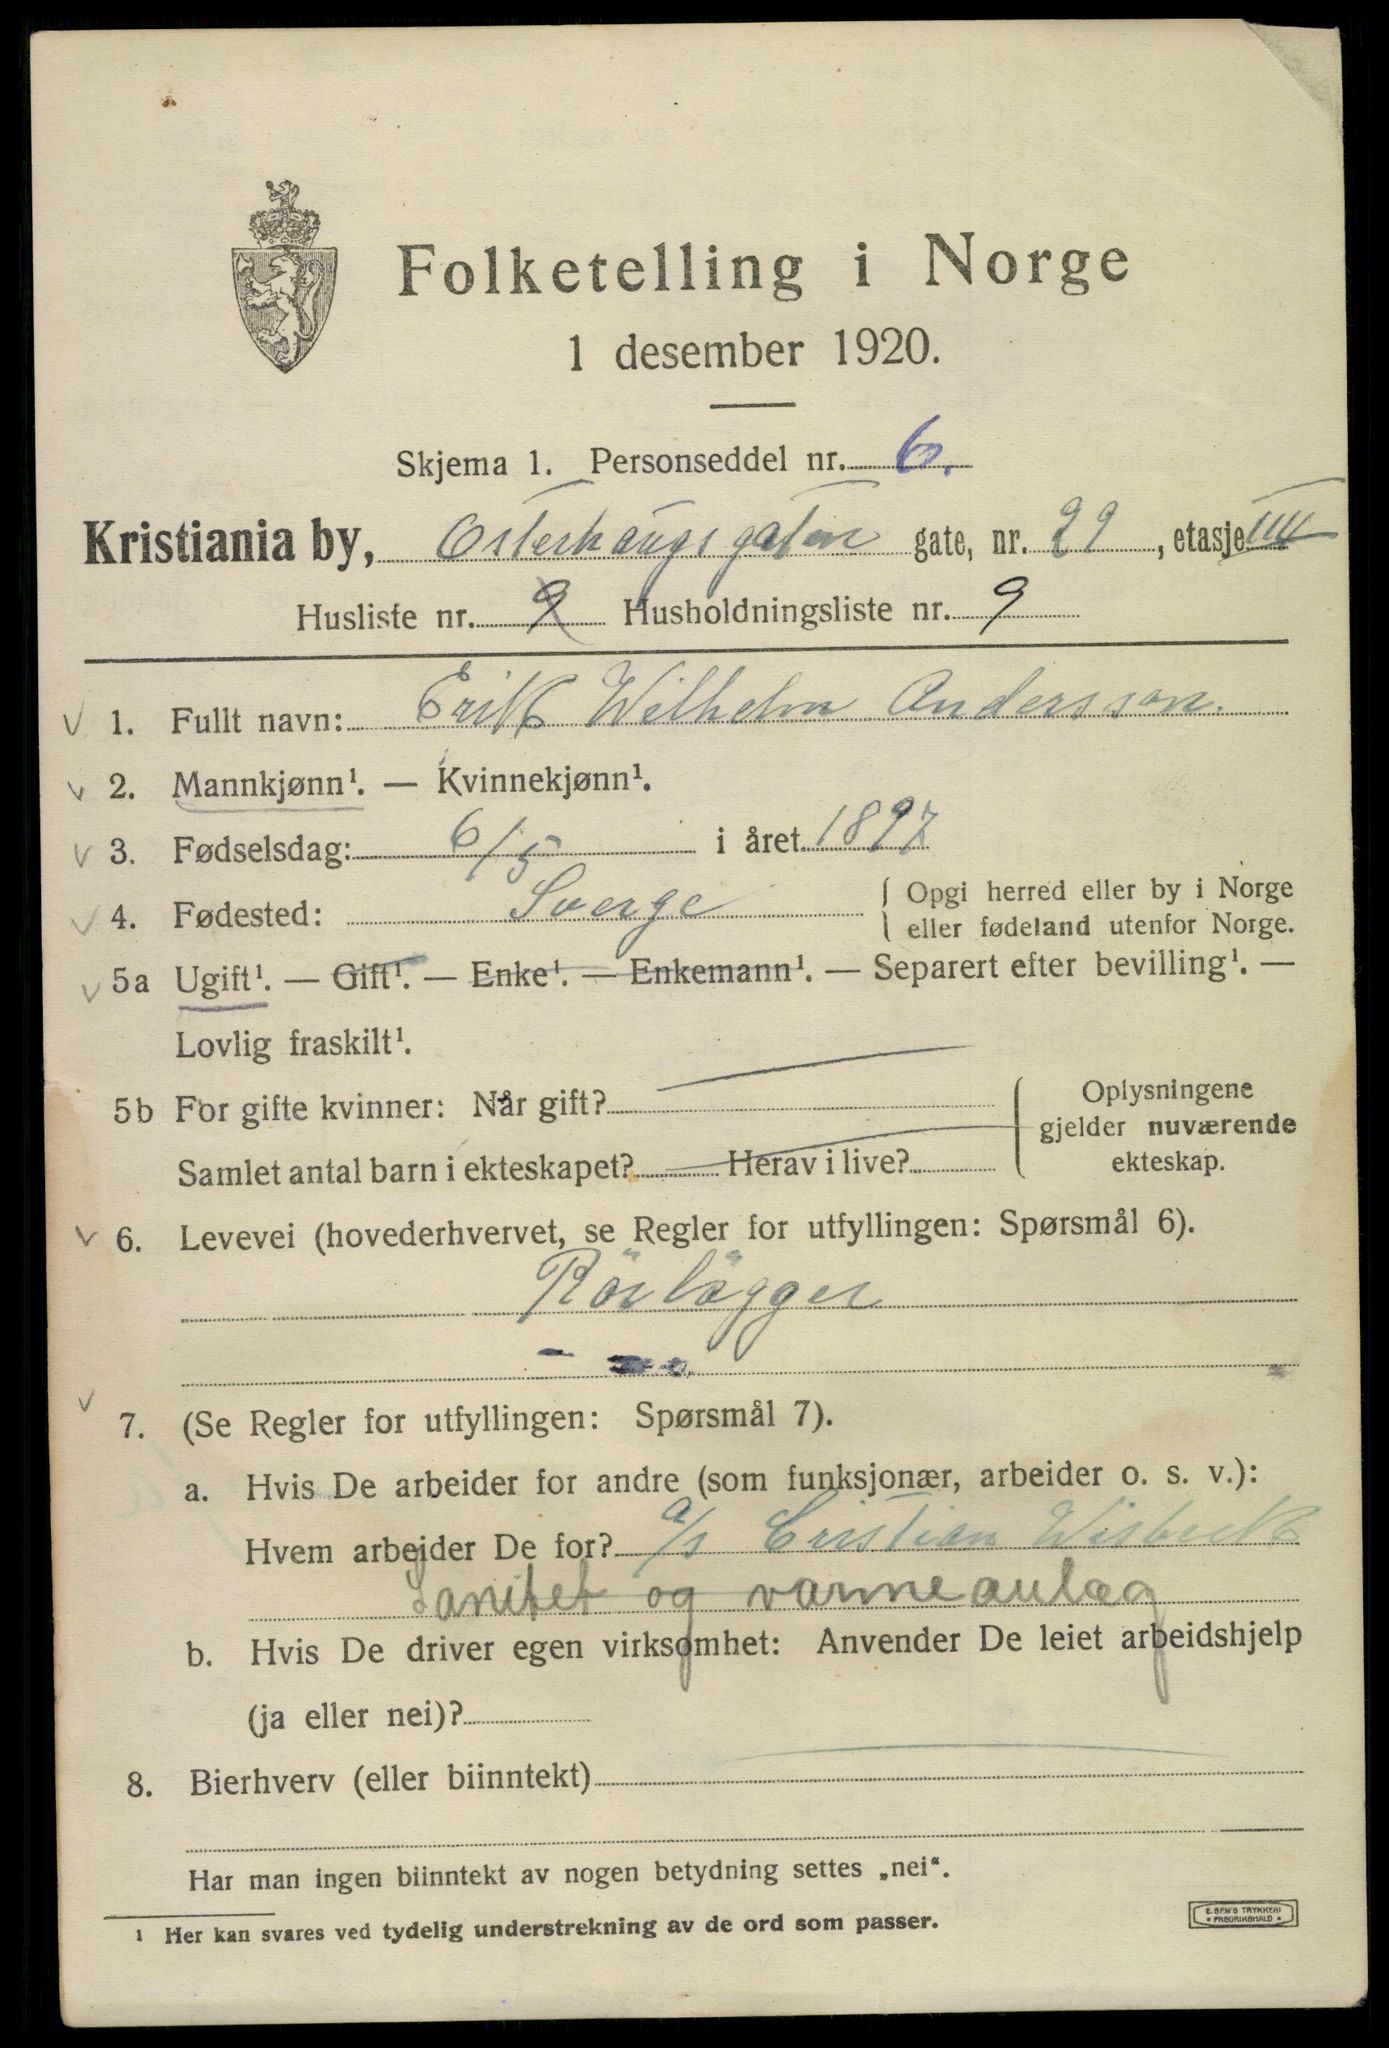 Folketelling i Norge
1 desember 1920.
Skjema 1. Personseddel nr. 6.
Kristiania by, Osterhaugsgaten gate, nr. 29, etasje IIII
Husliste nr. 9 Husholdningsliste nr. 9
1. Fullt navn: Erik Wilhelm Andersson.
2. Mannkjønn¹. — Kvinnekjønn¹.
3. Fødselsdag: 6/5 i året 1897
4. Fødested: Sverge { Opgi herred eller by i Norge
eller fødeland utenfor Norge.
5a Ugift¹. — Gift¹. — Enke¹. — Enkemann¹. — Separert efter bevilling¹. —
Lovlig fraskilt¹.
5b For gifte kvinner: Når gift?
Samlet antal barn i ekteskapet? Herav i live?
Oplysningene
gjelder nuværende
ekteskap.
6. Levevei (hovederhvervet, se Regler for utfyllingen: Spørsmål 6).
Rörlägger
7. (Se Regler for utfyllingen: Spørsmål 7).
a. Hvis De arbeider for andre (som funksjonær, arbeider o. s. v.):
Hvem arbejder De for? a/s Cristian Wisbeck
Sanitet og varmeanlæg
b. Hvis De driver egen virksomhet: Anvender De leiet arbeidshjelp
(ja eller nei)?
8. Bierhverv (eller biinntekt)
Har man ingen biinntekt av nogen betydning settes „nei“.
¹ Her kan svares ved tydelig understrekning av de ord som passer.
E. SEM'S TRYKKERI
• FREDRIKSHALD •